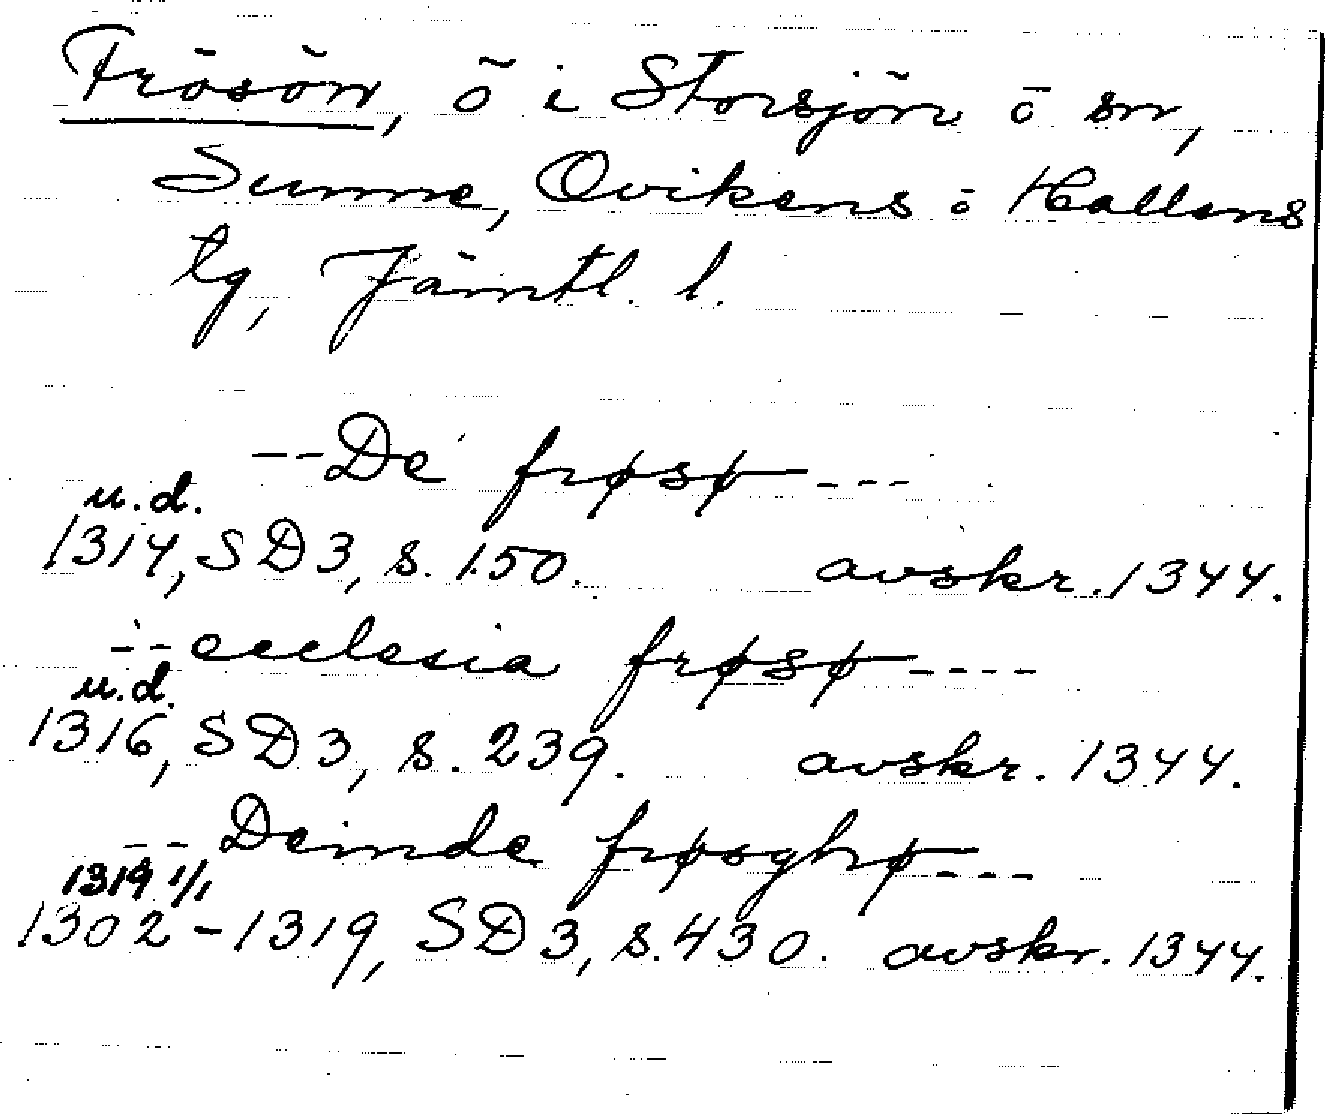 Frösön, ö i Storsjön o sn,
Sunne, Ovikens o Hallens
tg, Jämtl. l.
--De frøsø---
u.d.
1314, SD3, s. 150. avskr. 1344.
--ecclesia frøsø----
u.d.
1316, SD3, s. 239. avskr. 1344.
--Deinde frøsghø---
1319 1/1
1302-1319, SD3, s. 430. avskr. 1344.